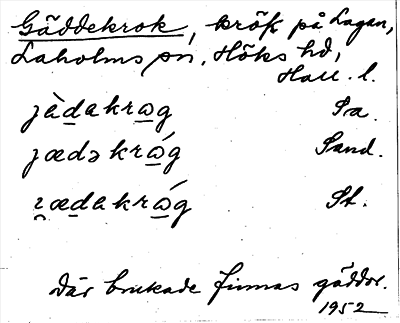 Gäddekrok, krök på Lagan,
Laholms sn, Höks hd,
Hall. l.
jàdakrωg Sa.
jædəkrώg Sand.
ʐædakrώg St.
Där brukade finnas gäddor.
1952